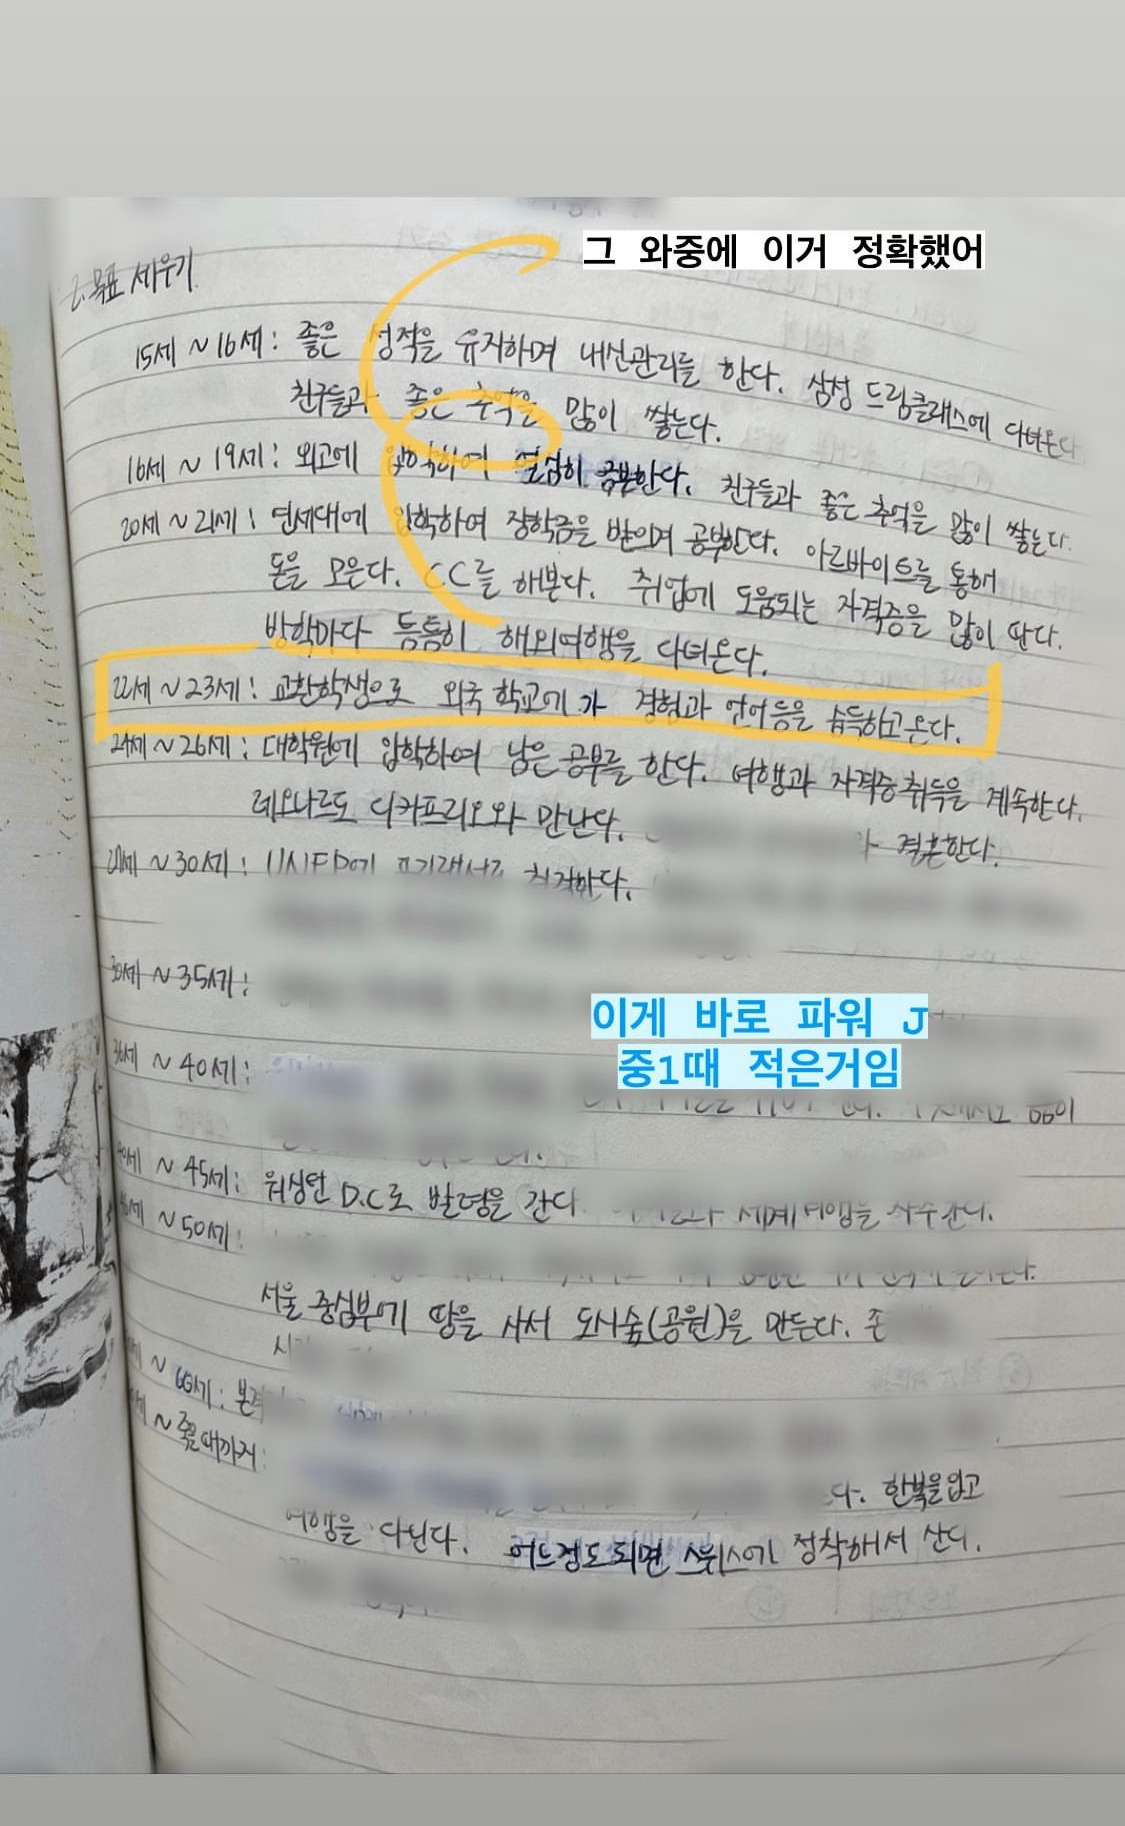 그 와중에 이거 정확했어
2. 목표 세우기
15세 ~ 16세 : 좋은 성적을 유지하며 내신관리를 한다. 삼성 드림클래스에 다녀온다
친구들과 좋은 추억을 많이 쌓는다.
16세 ~ 19세 : 외고에 입학하여 열심히 공부한다. 친구들과 좋은 추억을 많이 쌓는다.
20세 ~ 21세 : 연세대에 입학하여 장학금을 받으며 공부한다. 아르바이트를 통해
돈을 모은다. CC를 해본다. 취업에 도움되는 자격증을 많이 딴다.
방학마다 틈틈히 해외여행을 다녀온다.
22세 ~ 23세 : 교환학생으로 외국 학교에 가 경험과 언어등을 습득하고온다.
24세 ~ 26세 : 대학원에 입학하여 남은 공부를 한다. 여행과 자격증 취득을 계속한다.
레오나르도 디카프리오와 만난다. 결혼한다.
~ 30세 :
30세 ~ 35세 :
이게 바로 파워 J
중1때 적은거임
36세 ~ 40세 :
~ 45세 : 워싱턴 D.C로 발령을 간다 세계여행을 자주간다.
~ 50세 :
서울 중심부에 땅을 사서 도시숲(공원)을 만든다.
~ 죽을때까지 :
한복을입고
여행을 다닌다. 어느정도 되면 스위스에 정착해서 산다.